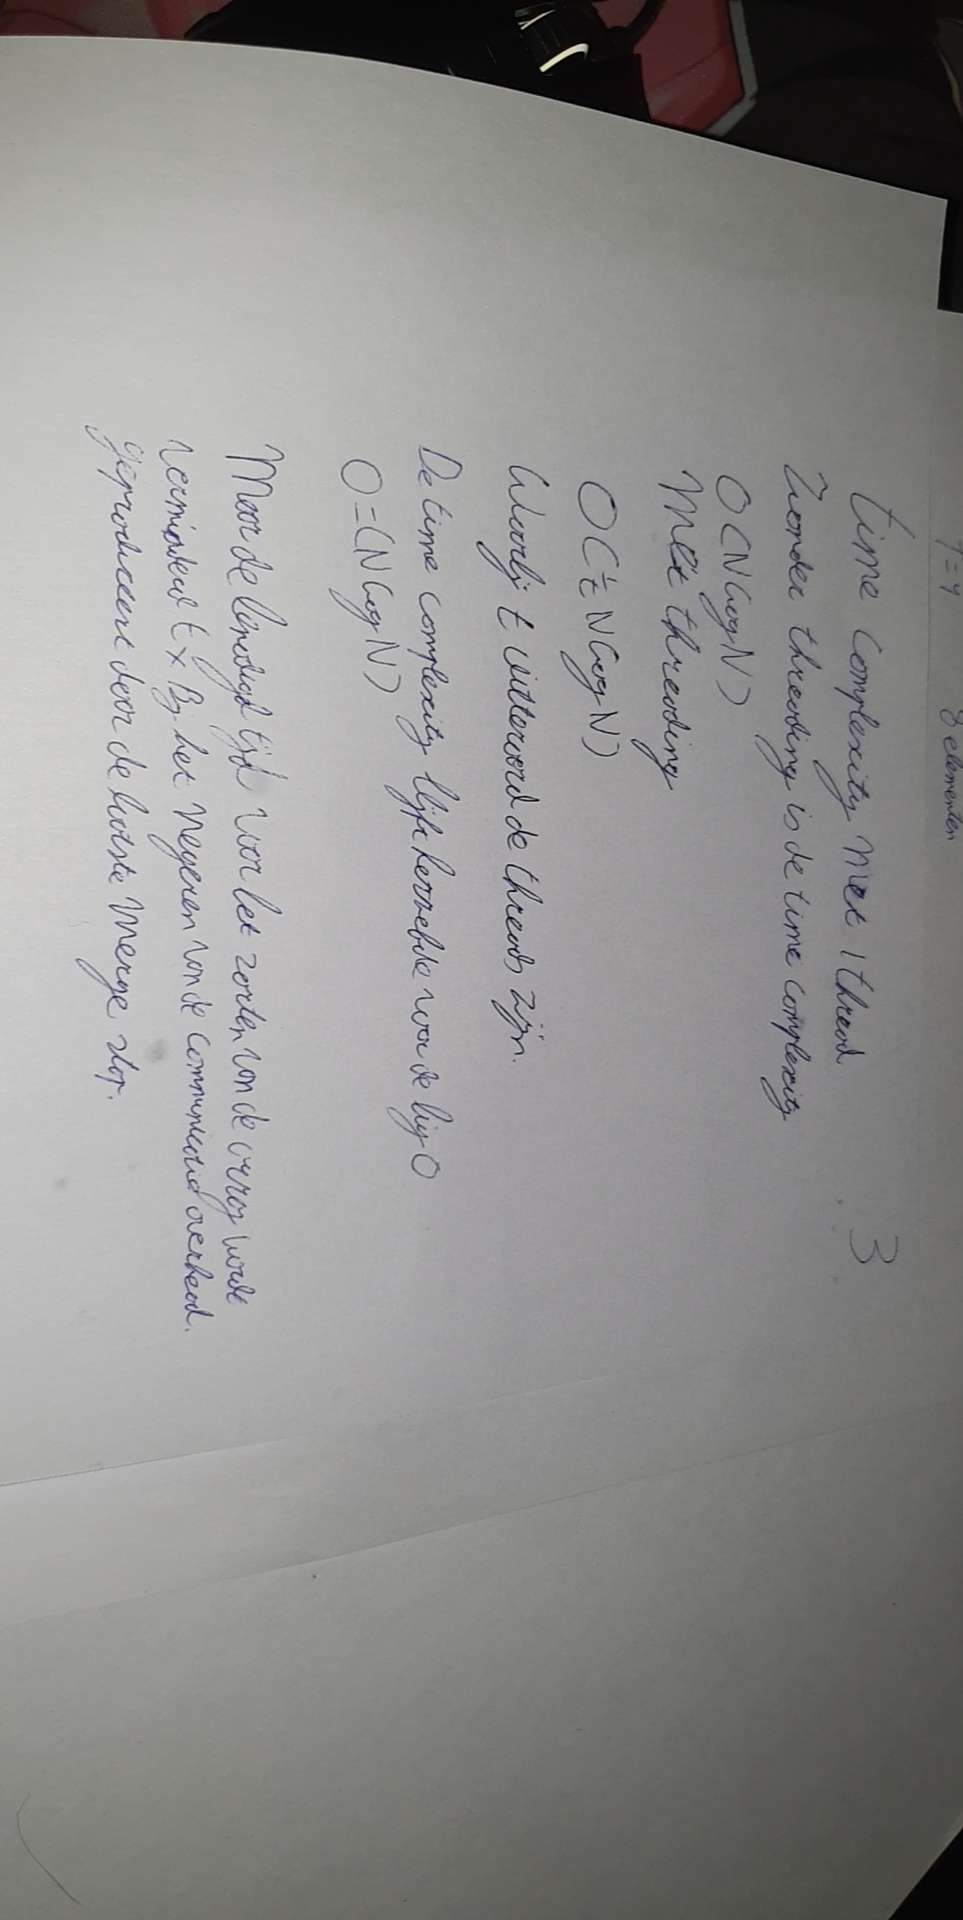 T=4 8 elementen
time complexity met 1 thread 3
Zonder threading is de time complexity
O(N log N)
Met threading
O(1/t N log N)
Waarbij t uiteraard de threads zijn.
De time complexity blijft hetzelfde voor de big O
O=(N log N)
Maar de benodigd tijd voor het sorten van de array wordt
verminderd t x Bij het negeren van de communicatie overhead.
geproduceert door de laatste merge stap.